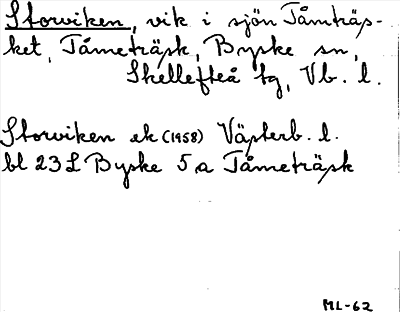 Storviken, vik i sjön Tåmträs-
ket, Tåmeträsk, Byske sn,
Skellefteå tg, Vb. l.
Storviken ek (1958) Västerb. l.
bl 23 L Byske 5 a Tåmeträsk
ML-62